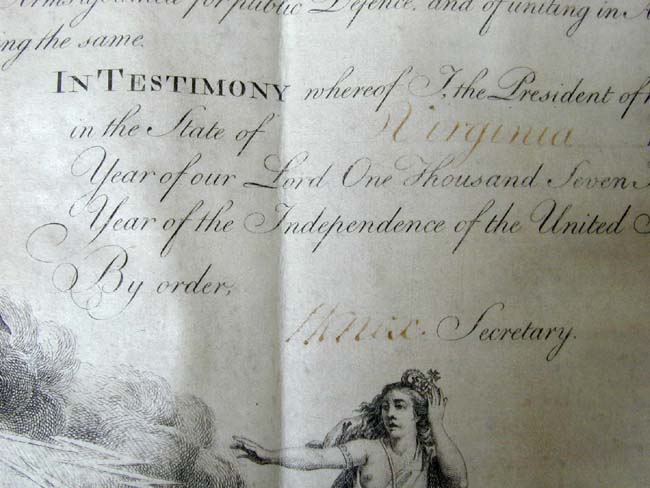 Arms assumed for public Defence, and of uniting in
ing the same.
IN TESTIMONY whereof I, the President of
in the State of Virginia
Year of our Lord One Thousand Seven
Year of the Independence of the United
By order,
HKnox. Secretary.